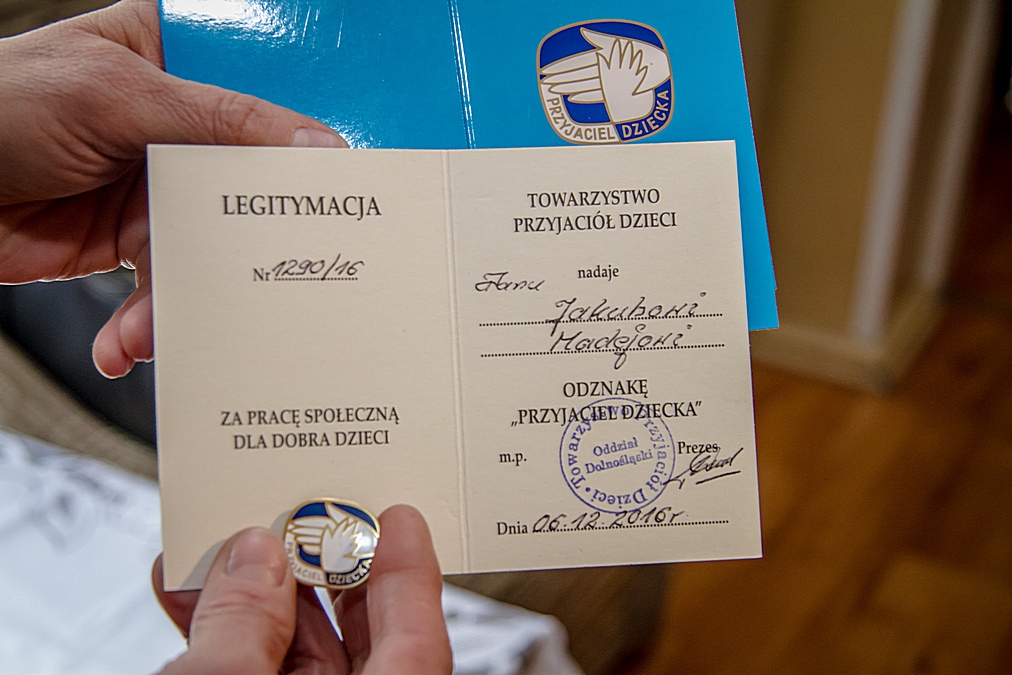 PRZYJACIEL DZIECKA
LEGITYMACJA
Nr 1290/16
ZA PRACĘ SPOŁECZNĄ
DLA DOBRA DZIECI
TOWARZYSTWO
PRZYJACIÓŁ DZIECI
nadaje
Panu
Jakubowi
Madejowi
ODZNAKĘ
„PRZYJACIEL DZIECKA”
m.p.
Prezes
Towarzystwo Przyjaciół Dzieci
Oddział
Dolnośląski
Dnia 06.12.2016r
PRZYJACIEL DZIECKA